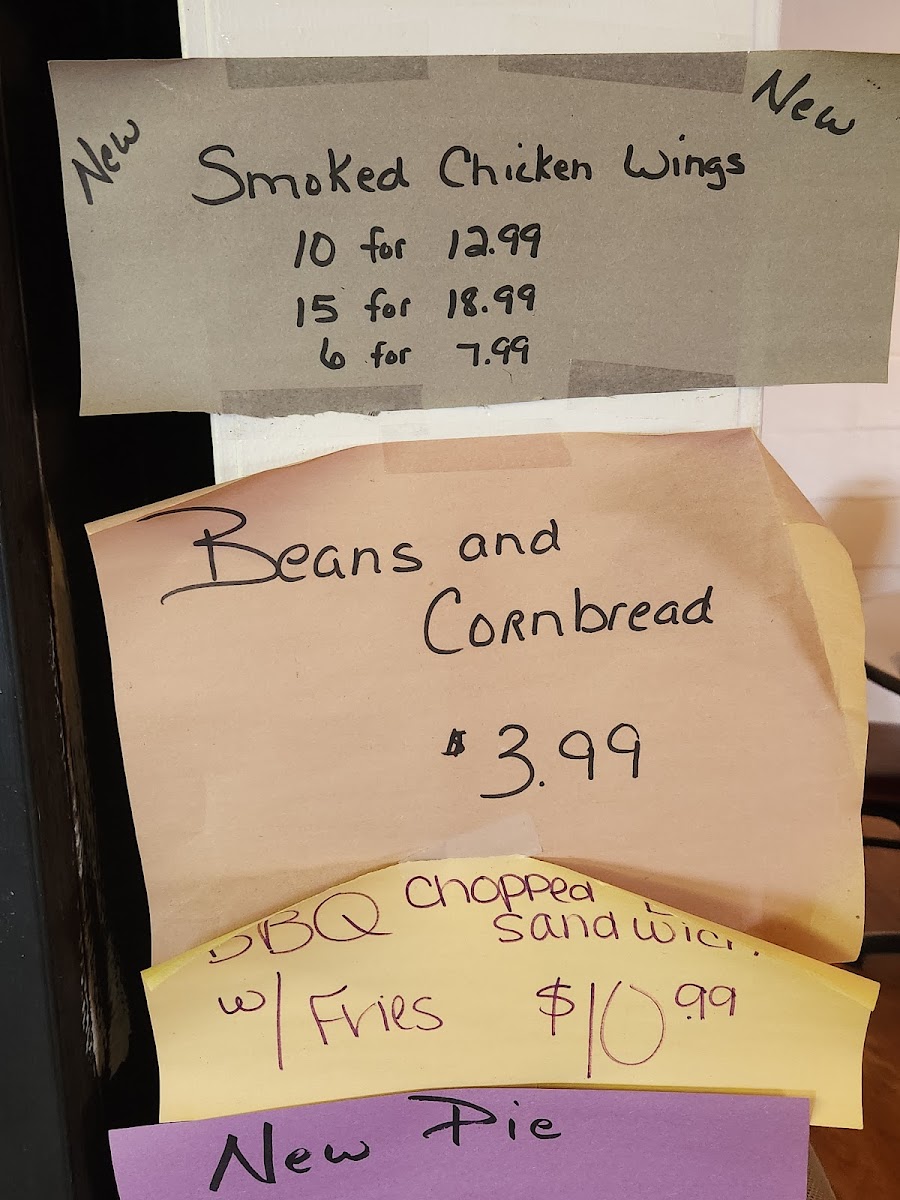 New
New
Smoked Chicken Wings
10 for 12.99
15 for 18.99
6 for 7.99
Beans and
Cornbread
$3.99
BBQ Chopped
Sandwich
w/ Fries $10.99
New Pie